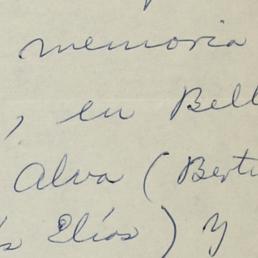 memoria
, en Bell
Alva (Bertu
s Elías) y